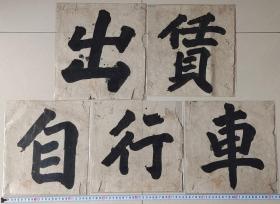 出賃
自行車